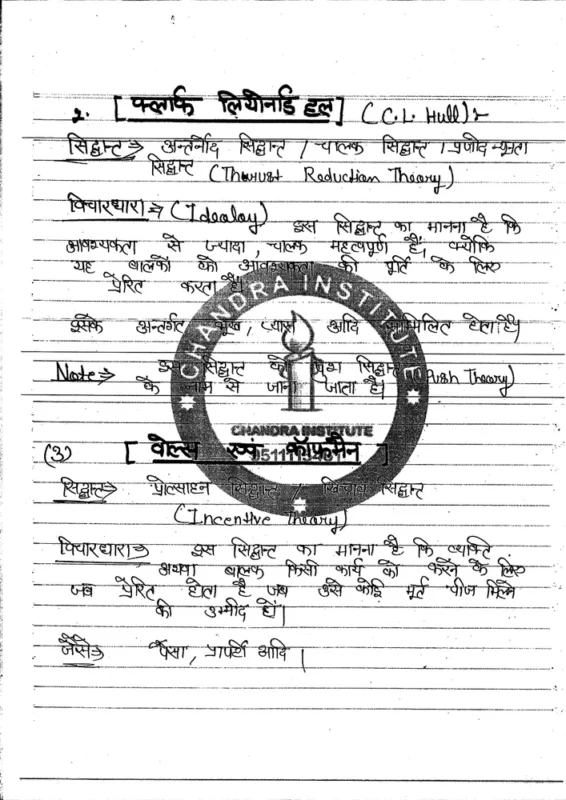 2. [ क्लार्क लियोनार्ड हल ] (C.L. Hull):-
सिद्धान्त⇒ अन्तर्नोद सिद्धान्त / चालक सिद्धान्त / प्रणोद न्यूनता
सिद्धान्त (Thrust Reduction Theory)
विचारधारा⇒ (Idealogy) इस सिद्धान्त का मानना है कि
आवश्यकता से ज्यादा, चालक महत्वपूर्ण हैं, क्योंकि
यह बालकों को आवश्यकता की पूर्ति के लिए
प्रेरित करता है।
इसके अन्तर्गत भूख, प्यास आदि सम्मिलित होता है।
Note⇒ इस सिद्धान्त को पुश सिद्धान्त (Push Theory)
के नाम से जाना जाता है।
CHANDRA INSTITUTE
CHANDRA INSTITUTE
(3) [ वोल्स एवं कॉफमैन ]
सिद्धान्त⇒ प्रोत्साहन सिद्धान्त / खिंचाव सिद्धान्त
(Incentive Theory)
विचारधारा⇒ इस सिद्धान्त का मानना है कि व्यक्ति
अथवा बालक किसी कार्य को करने के लिए
जब प्रेरित होता है जब उसे कोई मूर्त चीज मिलने
की उम्मीद हो।
जैसे⇒ पैसा, प्रापर्टी आदि।